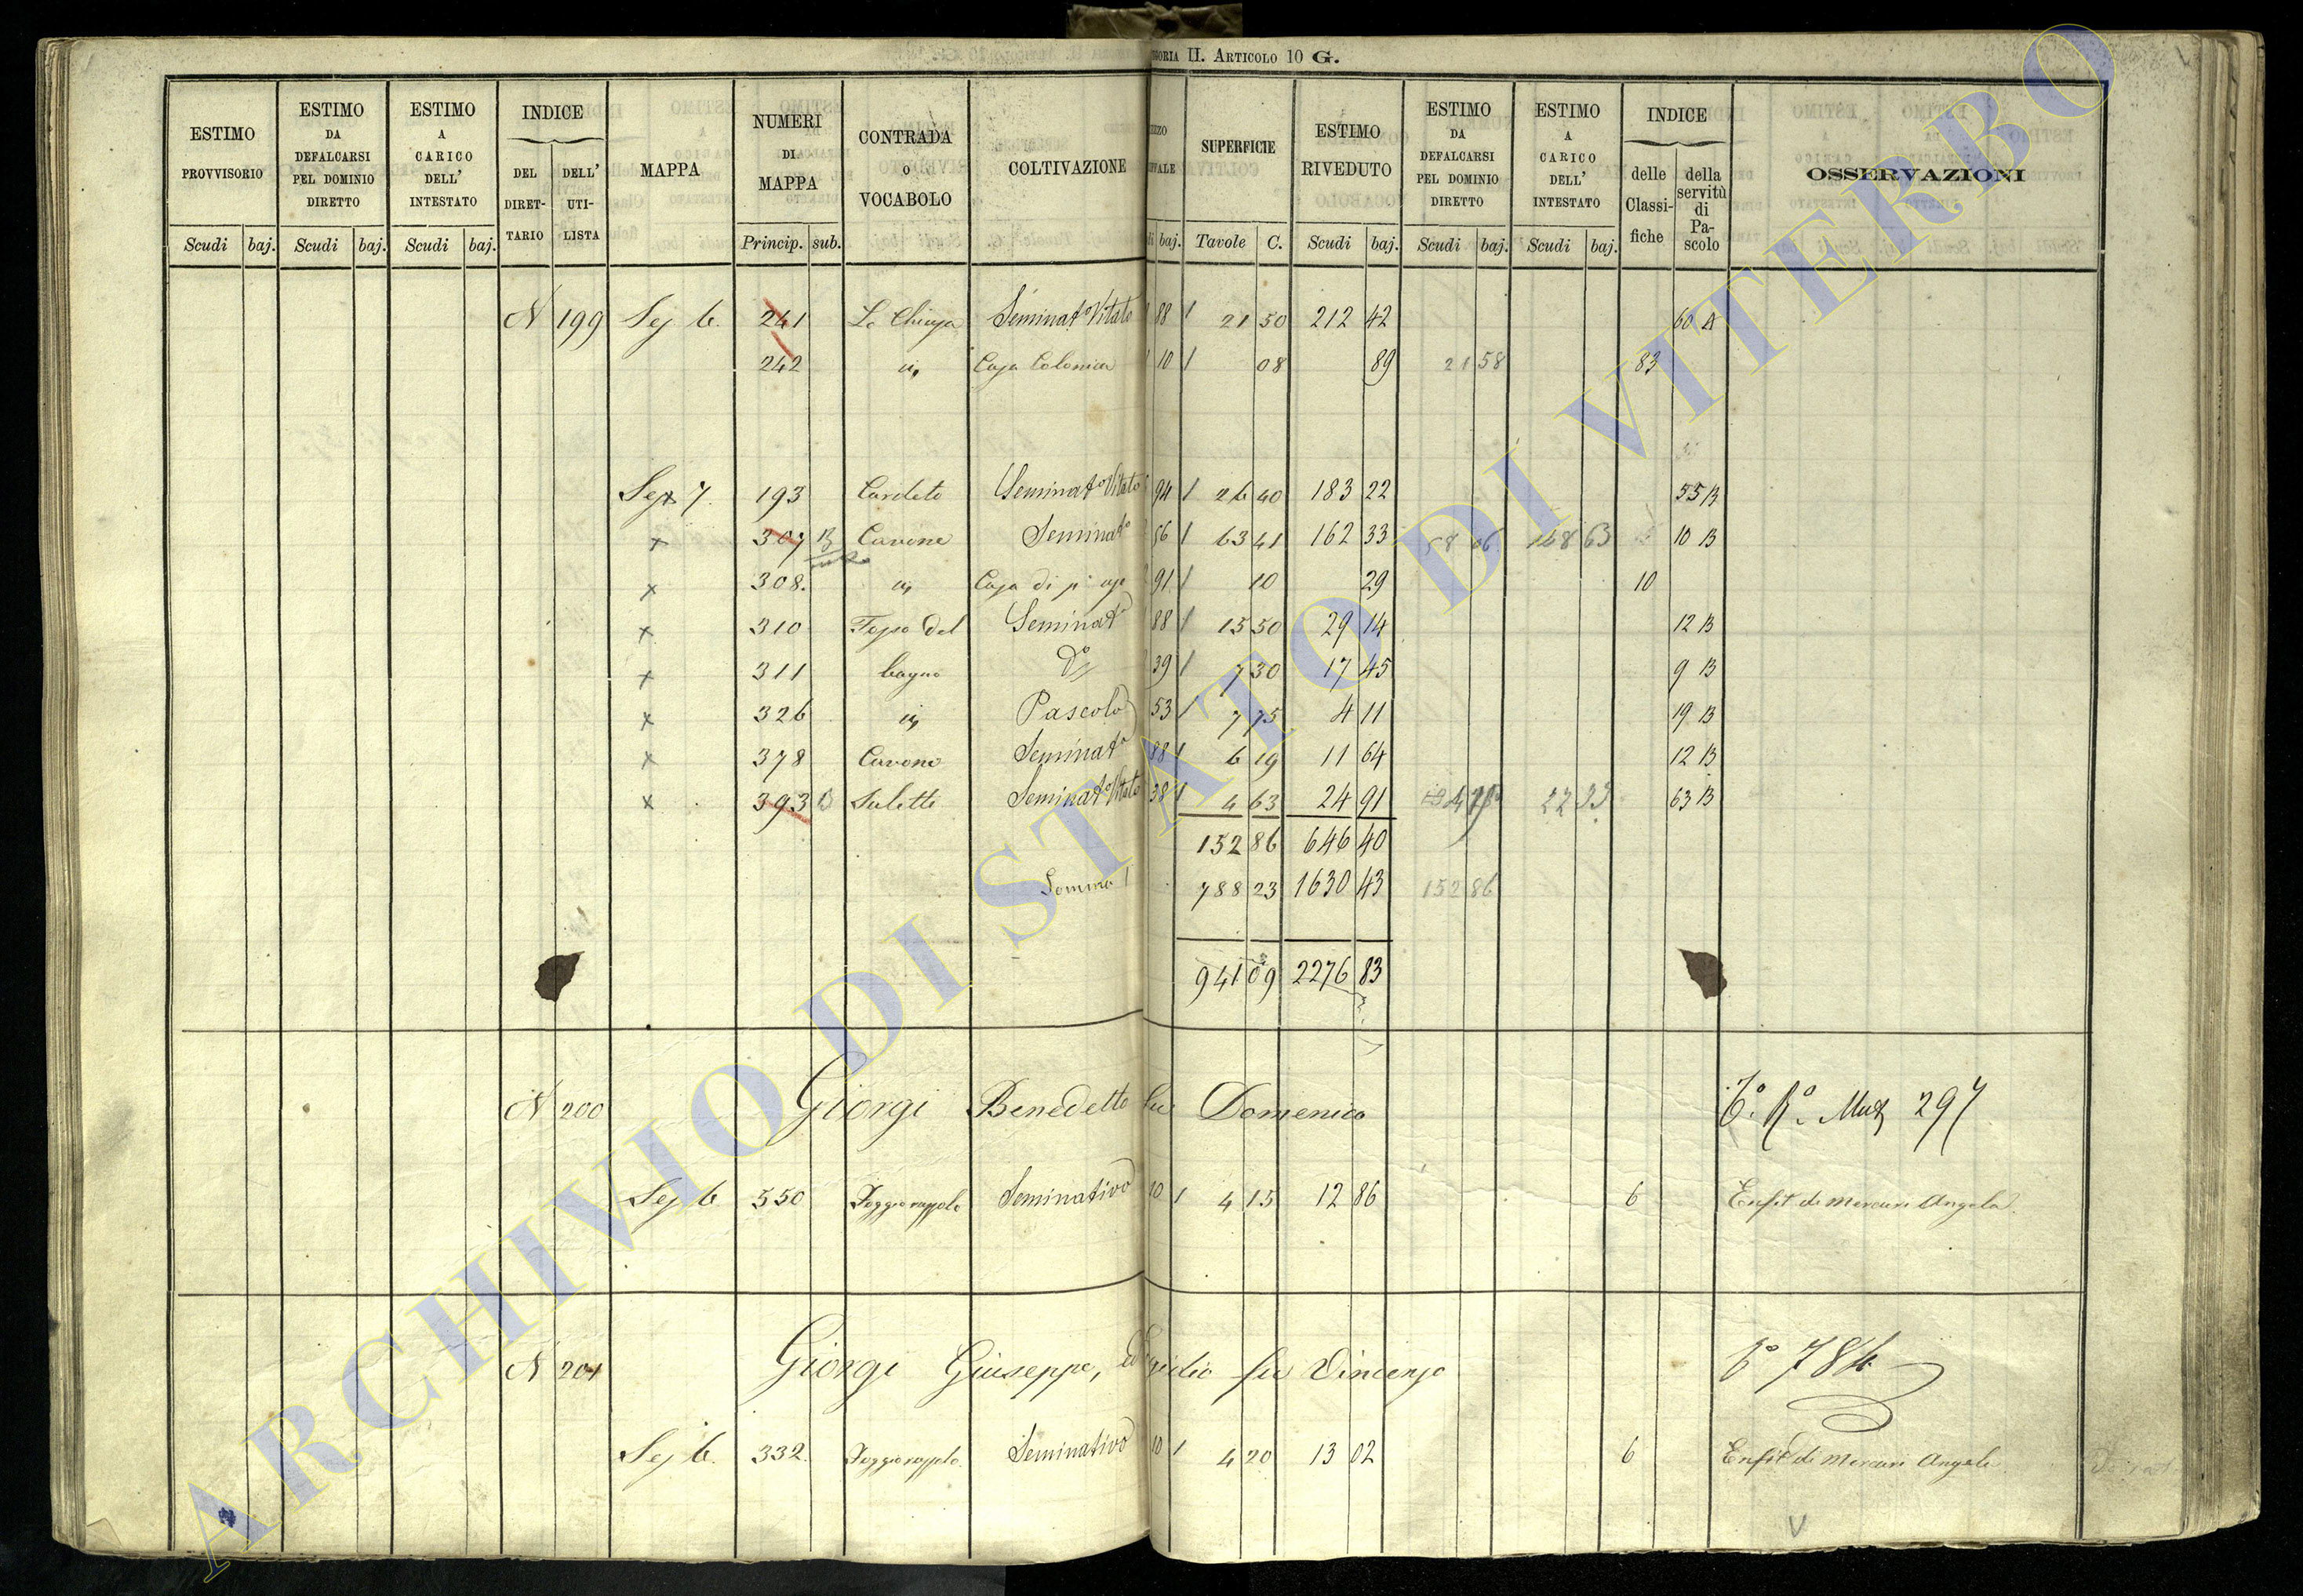 II. ARTICOLO 10 G.
ESTIMO PROVVISORIO
ESTIMO DA DEFALCARSI PEL DOMINIO DIRETTO
ESTIMO A CARICO DELL' INTESTATO
INDICE
DEL DIRETTARIO
DELL' UTILISTA
MAPPA
NUMERI DI MAPPA
CONTRADA O VOCABOLO
COLTIVAZIONE
SUPERFICIE
ESTIMO RIVEDUTO
ESTIMO DA DEFALCARSI PEL DOMINIO DIRETTO
ESTIMO A CARICO DELL' INTESTATO
INDICE
delle Classifiche
della servitù di Pascolo
OSSERVAZIONI
Scudi baj. Scudi baj. Scudi baj. Princip. sub. baj. Tavole C. Scudi baj. Scudi baj. Scudi baj.
N 199 Sez 6. 241 Seminato Vitato 88 1 21 50 212 42 60 A
242 Casa Colonica 10 1 08 89 21 58 83
7. 193 Cardeto Seminato Vitato 94 1 26 40 183 22 55 B
x 307 B Cavone Seminato 56 1 63 41 162 33 10 B
x 308. Casa di 91 1 10 29 10
x 310 del Seminato 88 1 15 50 29 14 12 B
x 311 bagno Do 39 1 7 30 17 45 9 B
x 326 Pascolo 53 1 7 75 4 11 19 B
x 378 Cavone Seminato 88 1 6 19 11 64 12 B
x 393 B Seminato Vitato 38 1 4 63 24 91 63 B
152 86 646 40
Somma 788 23 1630 43 152 86
941 09 2276 83
N 200 Giorgi Benedetto fu Domenico 297
Sez 6. 550 Seminativo 10 1 4 15 12 86 6 Enfit di Mercuri Angela.
N 201 Giorgi Giuseppe, ed Egidio fu Vincenzo 784
Sez 6. 332. Seminativo 10 1 4 20 13 02 6 Enfit di Mercuri Angela
ARCHIVIO DI STATO DI VITERBO